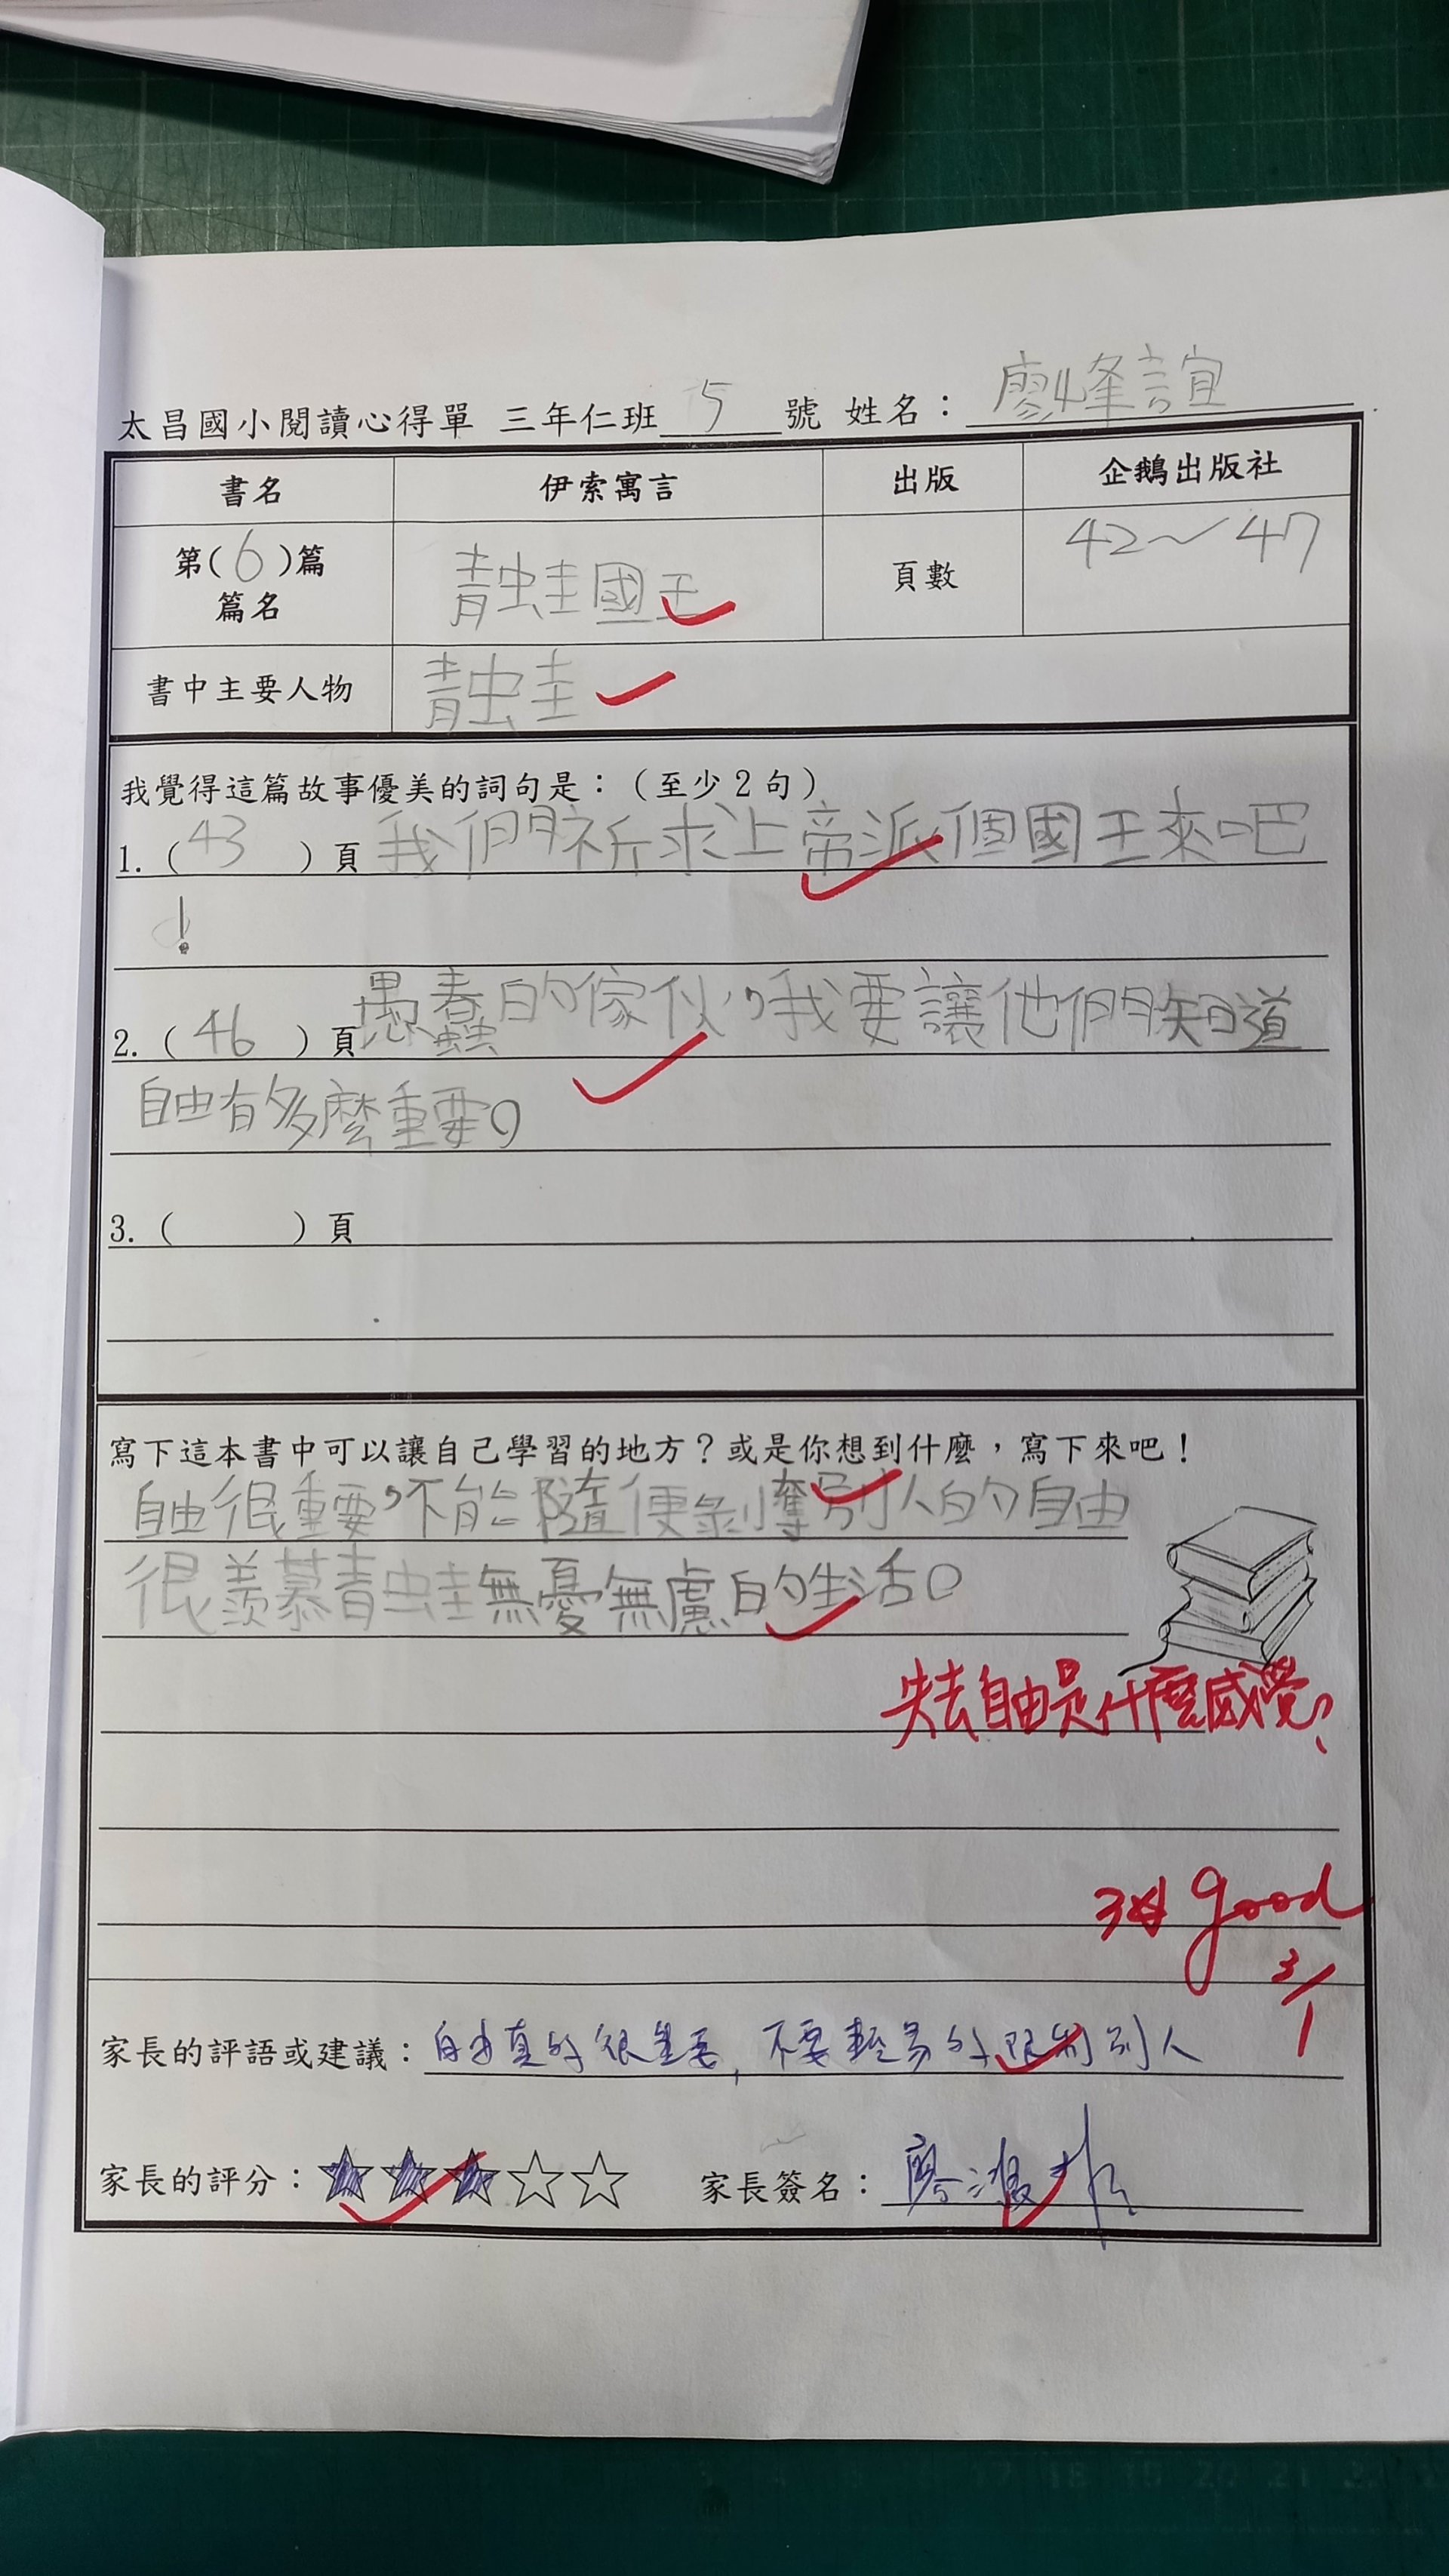 太昌國小閱讀心得單 三年仁班 5 號 姓名：廖峰誼
書名 伊索寓言 出版 企鵝出版社
第(6)篇 篇名 青蛙國王 頁數 42~47
書中主要人物 青蛙
我覺得這篇故事優美的詞句是：（至少2句）
1.（43）頁 我們祈求上帝派個國王來吧
！
2.（46）頁 愚蠢的傢伙，我要讓他們知道
自由有多麼重要。
3.（ ）頁
寫下這本書中可以讓自己學習的地方？或是你想到什麼，寫下來吧！
自由很重要，不能隨便剝奪別人的自由
很羨慕青蛙無憂無慮的生活。
失去自由是什麼感覺？
3☆ good
3/1
家長的評語或建議：自由真的很重要，不要輕易的限制別人
家長的評分：★★★☆☆ 家長簽名：廖